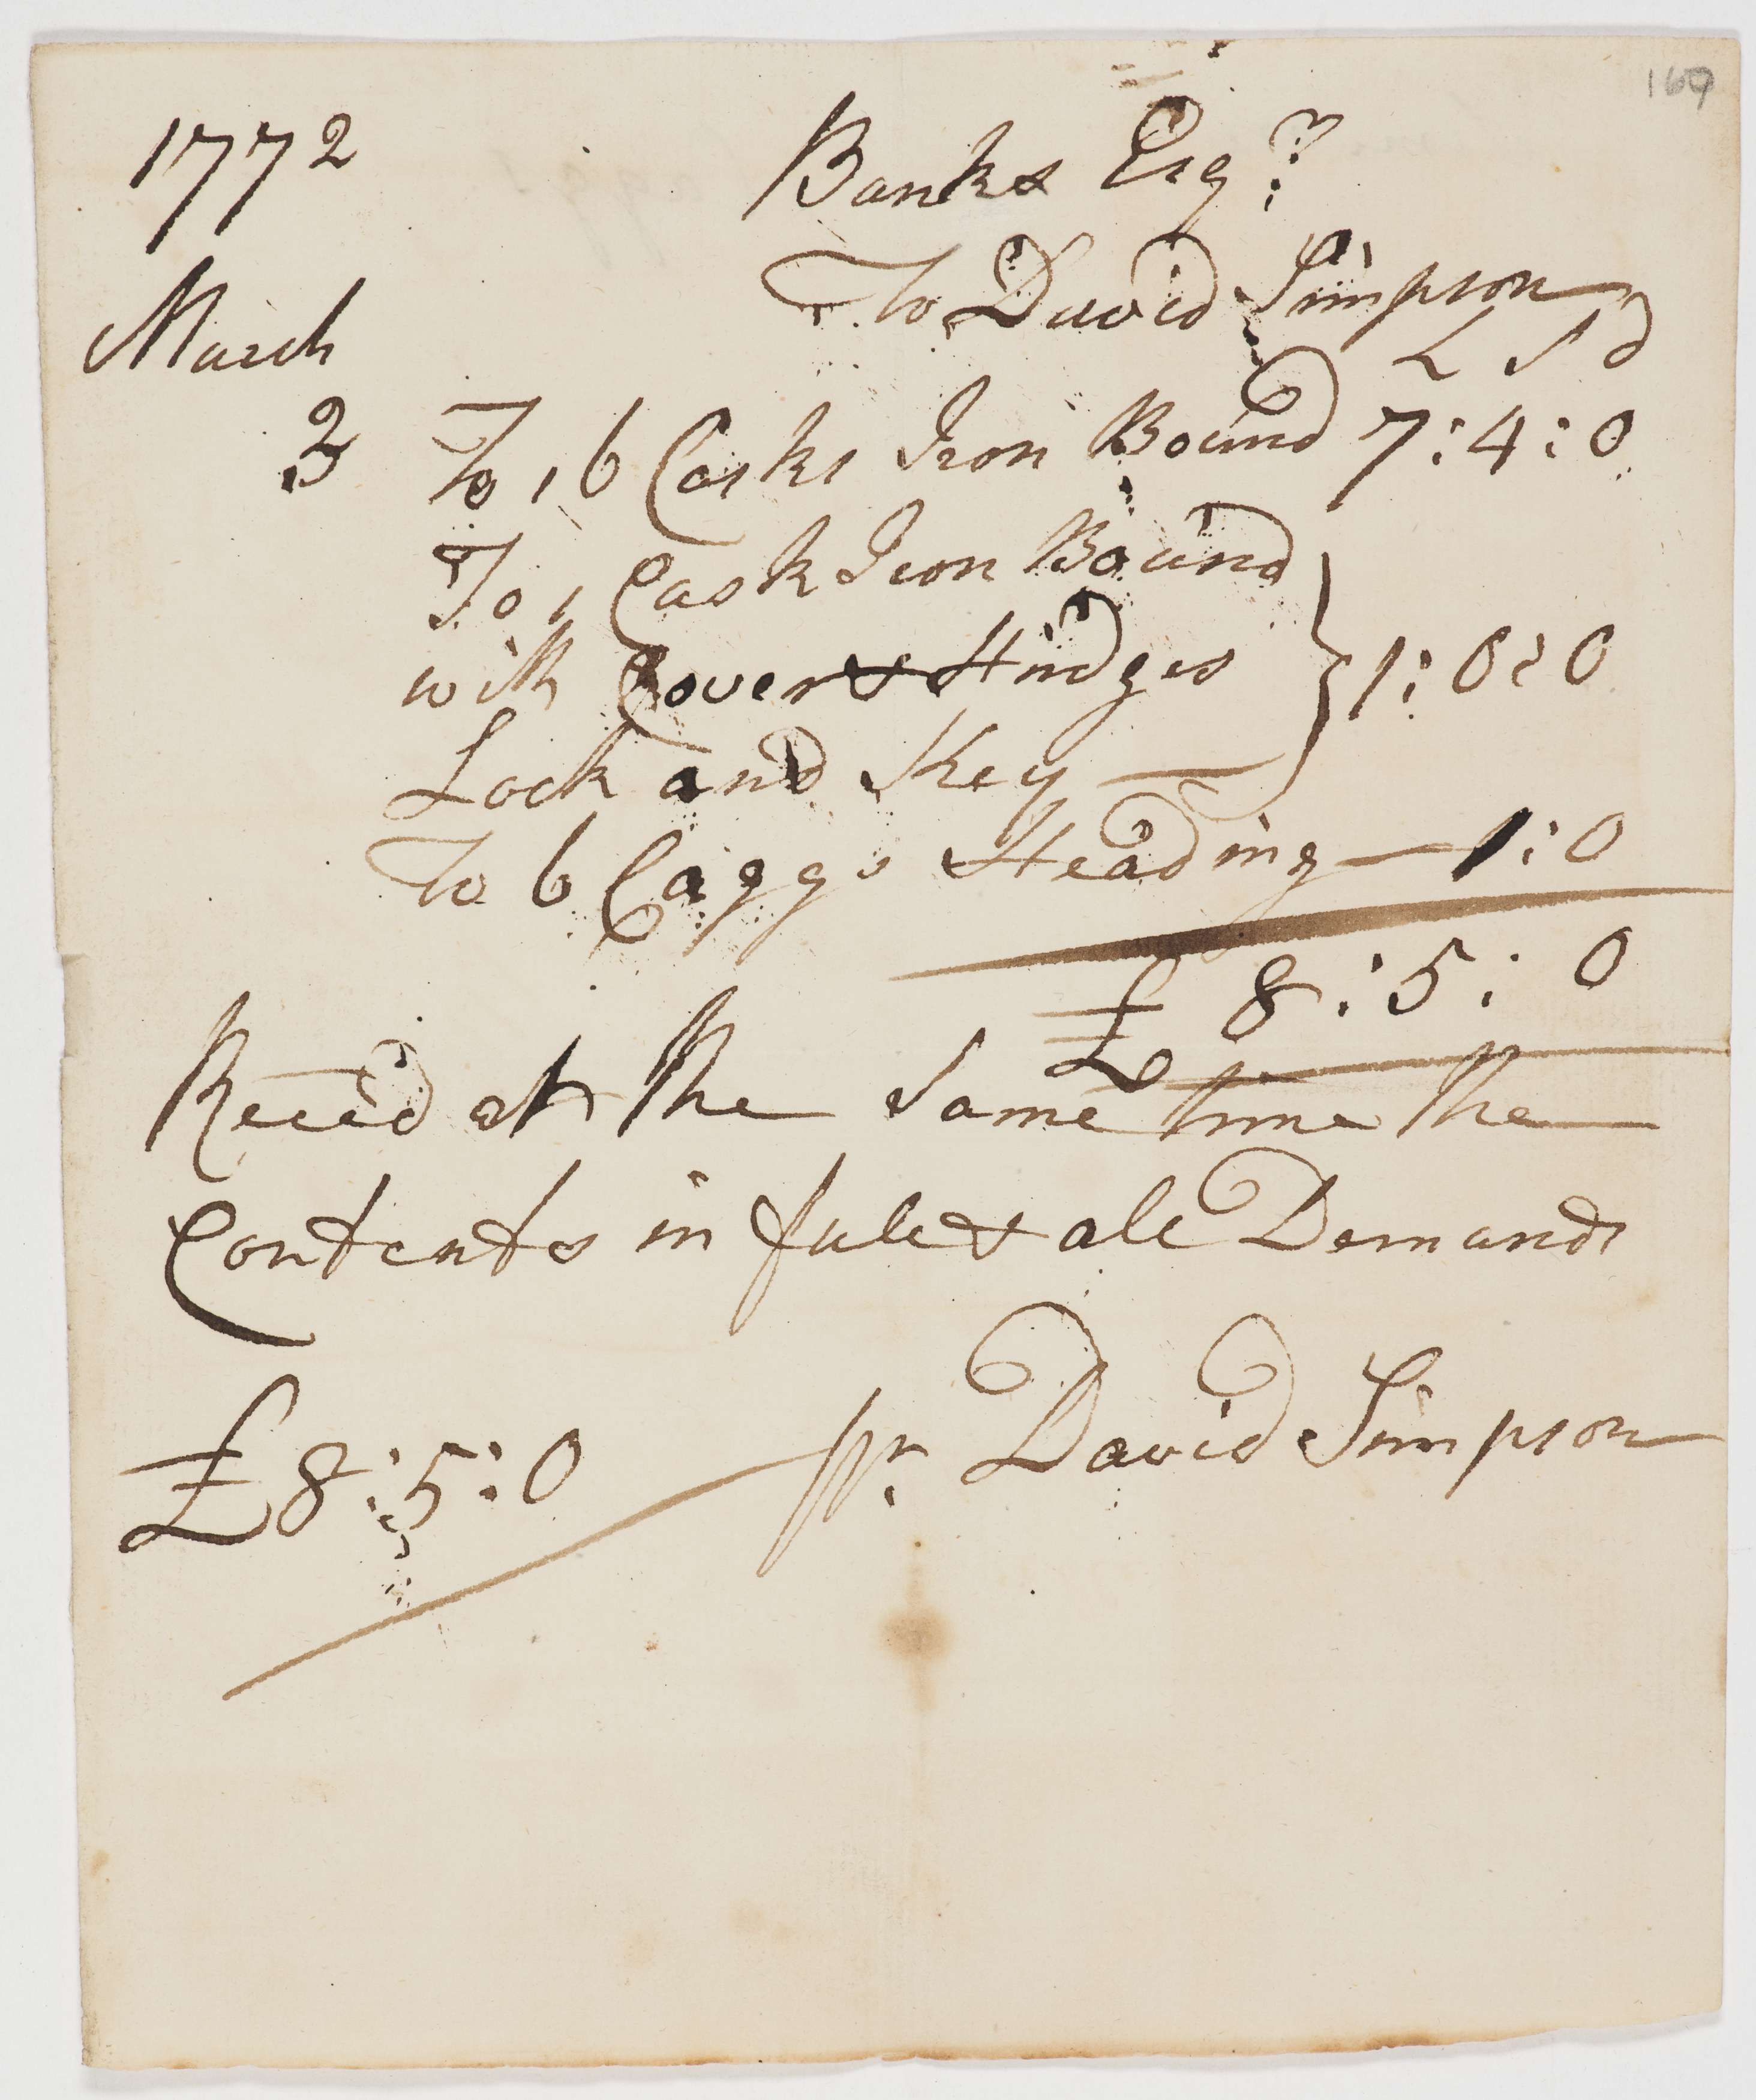 169
1772 Banks Esqr
To David Simpson
March L S d
3 To 16 Casks Iron Bound 7:4:0
To 1 Cask Iron Bound
with Cover & Hindges } 1:0:0
Lock and Key
To 6 Caggs Heading 1:0
£ 8:5:0
Receed at the Same time the
Contents in full & all Demands
£8:5:0 pr David Simpson